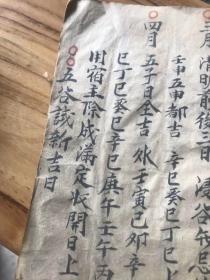 三月 清明前後三日 浸谷午巳
壬申 五申都吉 辛巳癸巳丁巳
四月 五子日全吉 外壬寅己卯辛
巳丁巳癸巳辛巳庚午壬午丙
用宿玉除成满定收開日上
五谷試新吉日